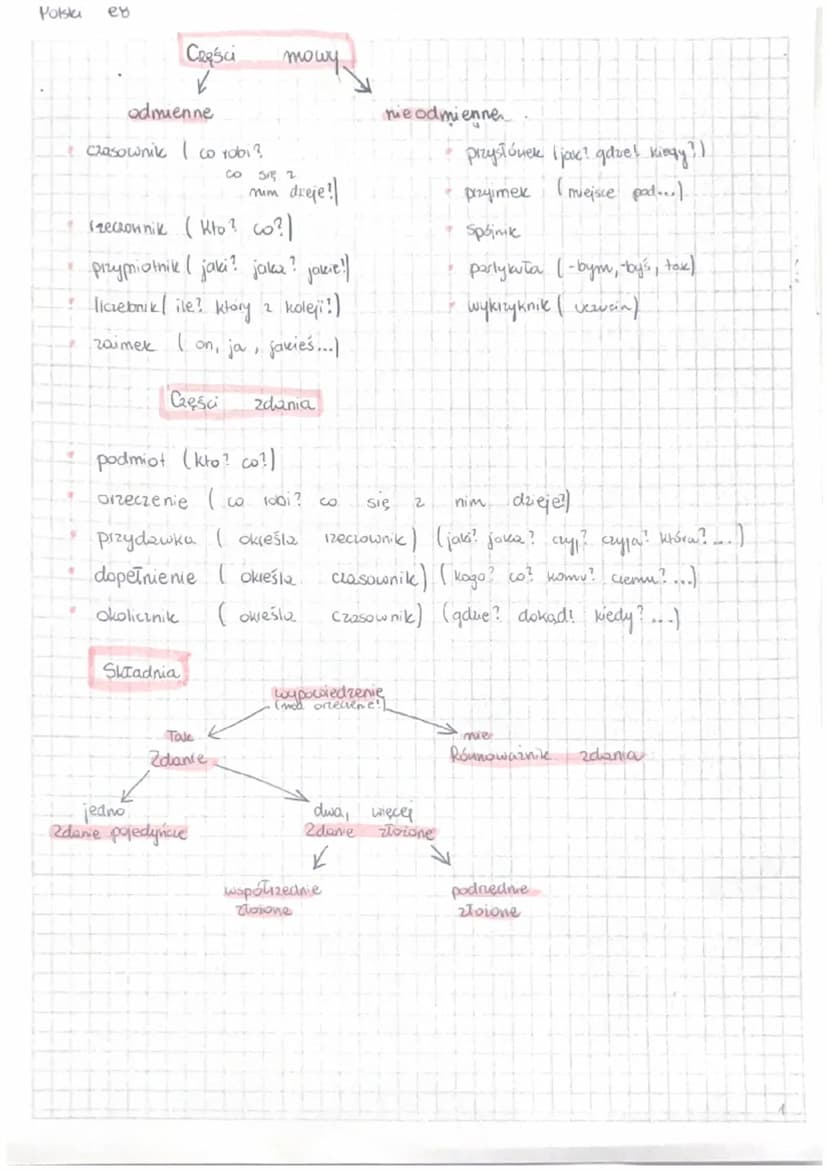 Polski e8
Części mowy
odmienne
nieodmienne
czasownik (co robi?
co się z
nim dzieje?)
rzeczownik (kto? co?)
przymiotnik (jaki? jaka? jakie?)
liczebnik (ile? który z kolej?)
zaimek (on, ja, jakieś...)
przysłówek (jak? gdzie? kiedy?)
przyimek (miejsce pod...)
spójnik
partykuła (-bym, -byś, tak)
wykrzyknik (uczucia)
Części zdania
podmiot (kto? co?)
orzeczenie (co robi? co się z nim dzieje?)
przydawka (określa rzeczownik) (jaki? jaka? czyj? czyja? która?...)
dopełnienie (określa czasownik) (kogo? co? komu? czemu?...)
okolicznik (określa czasownik) (gdzie? dokąd? kiedy?...)
Składnia
wypowiedzenie
orzeczenie?)
Tak
Zdanie
nie
Równoważnik zdania
jedno
Zdanie pojedyńcze
dwa, więcej
Zdanie złożone
współrzędnie
złożone
podrzędnie
złożone
1